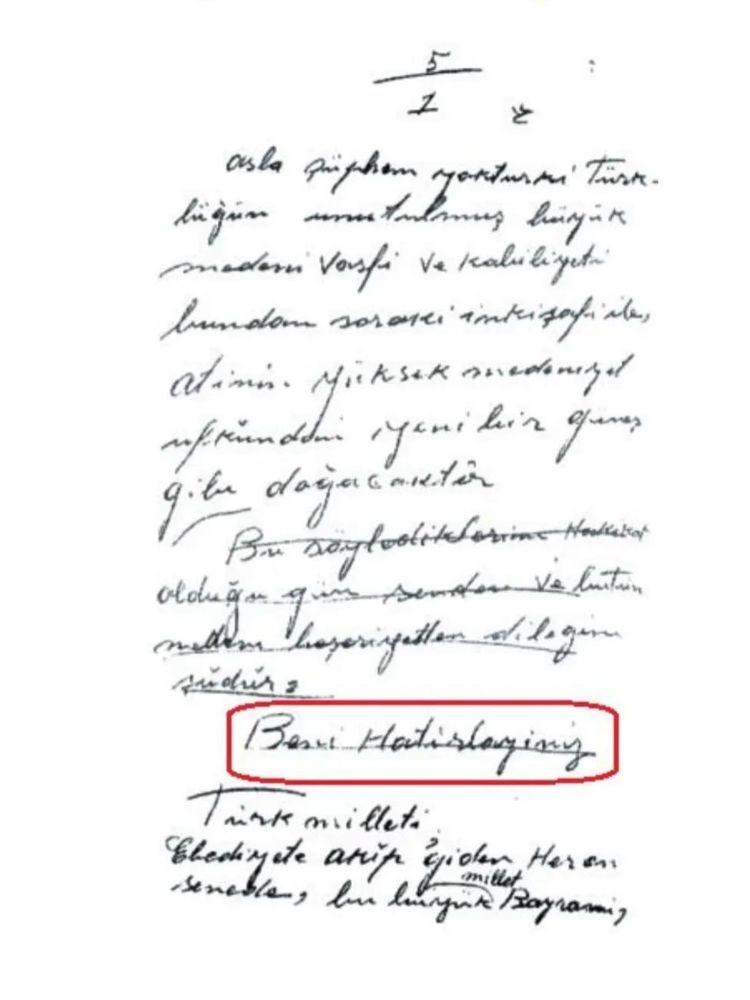 5
1
asla şüphem yokturki Türk-
lüğün unutulmuş büyük
medeni vasfi ve kabiliyeti
bundan soraki inkişafi ile,
atinin yüksek medeniyet
ufkundan yeni bir güneş
gibi doğacaktır
Bu söylediklerim Hakikat
olduğu gün senden ve bütün
medeni beşeriyetten dileğim
şudur:
Beni Hatirlayiniz
Türk milleti,
Ebediyete akıp giden Her on
senede, bu büyük millet Bayramı,